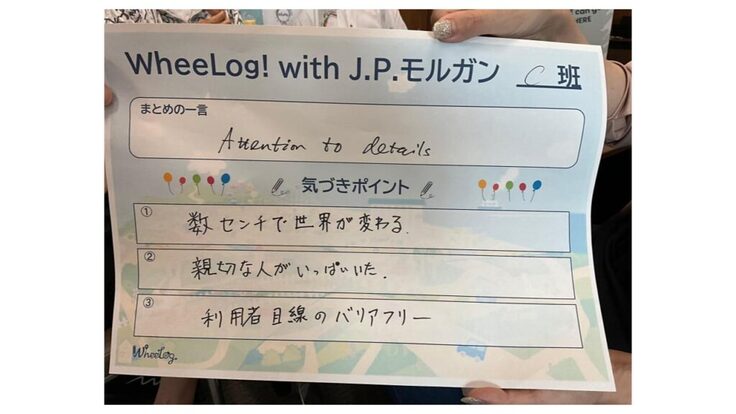 WheeLog! with J.P.モルガン C 班
まとめの一言
Attention to details
気づきポイント
① 数センチで世界が変わる.
② 親切な人がいっぱいいた.
③ 利用者目線のバリアフリー
WheeLog.